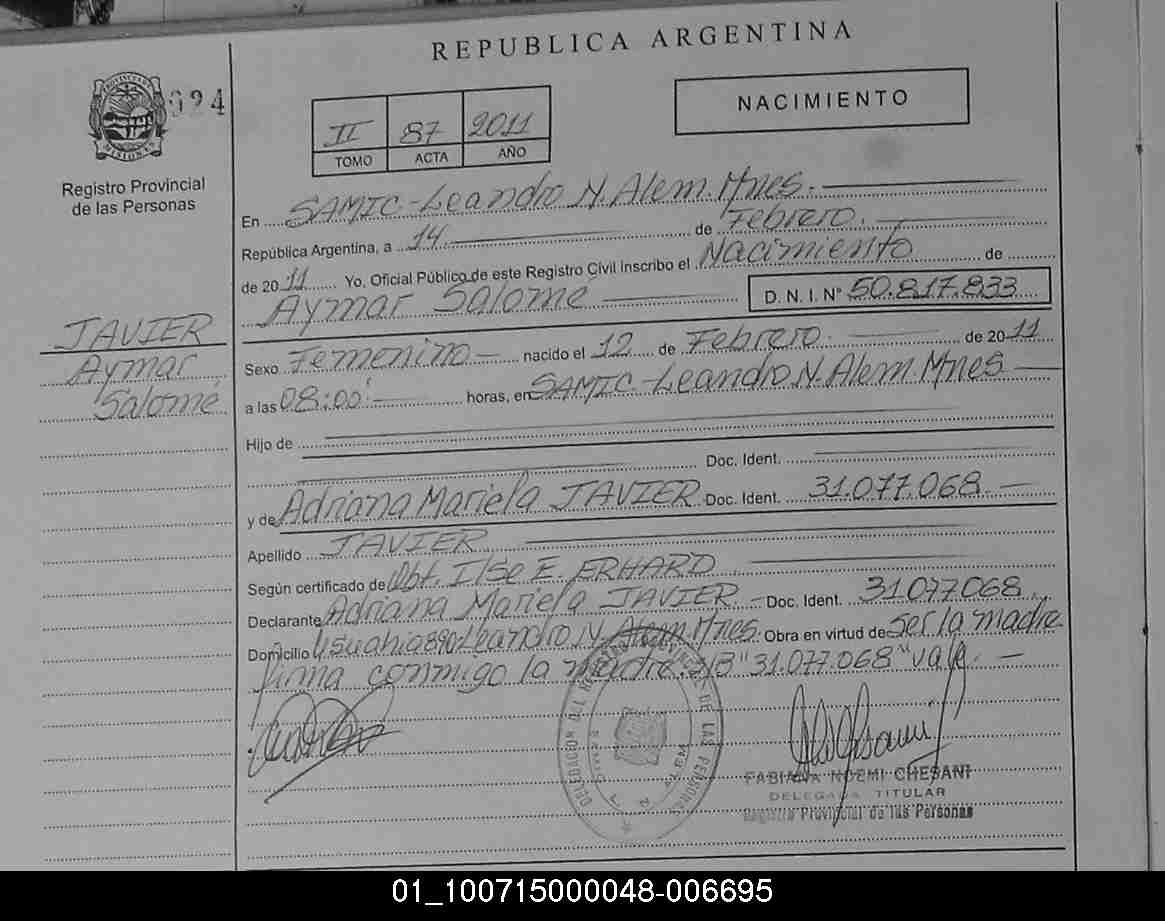 REPUBLICA ARGENTINA
PROVINCIA DE MISIONES
024
NACIMIENTO
II 87 2011
TOMO ACTA AÑO
Registro Provincial
de las Personas
En SAMIC-Leandro N. Alem. Mnes.
República Argentina, a 14 de Febrero.
de 2011 Yo, Oficial Público de este Registro Civil Inscribo el Nacimiento de
Aymar Salomé D. N. I. N° 50.817.833
JAVIER
Aymar
Salomé
Sexo Femenino nacido el 12 de Febrero de 2011
a las 08:00' horas, en SAMIC-Leandro N. Alem. Mnes
Hijo de
Doc. Ident.
y de Adriana Mariela JAVIER Doc. Ident. 31.077.068
Apellido JAVIER
Según certificado de Obt. Ilse E. ERHARD
Declarante Adriana Mariela JAVIER. Doc. Ident. 31.077.068
Domicilio Usuahia 890 Leandro N. Alem. Mnes. Obra en virtud de ser la madre
firma conmigo la madre. S/B "31.077.068" vale.
DELEGACION DEL REGISTRO PROVINCIAL DE LAS PERSONAS
FABIANA NOEMI CHESANI
DELEGADA TITULAR
Registro Provincial de las Personas
01_100715000048-006695